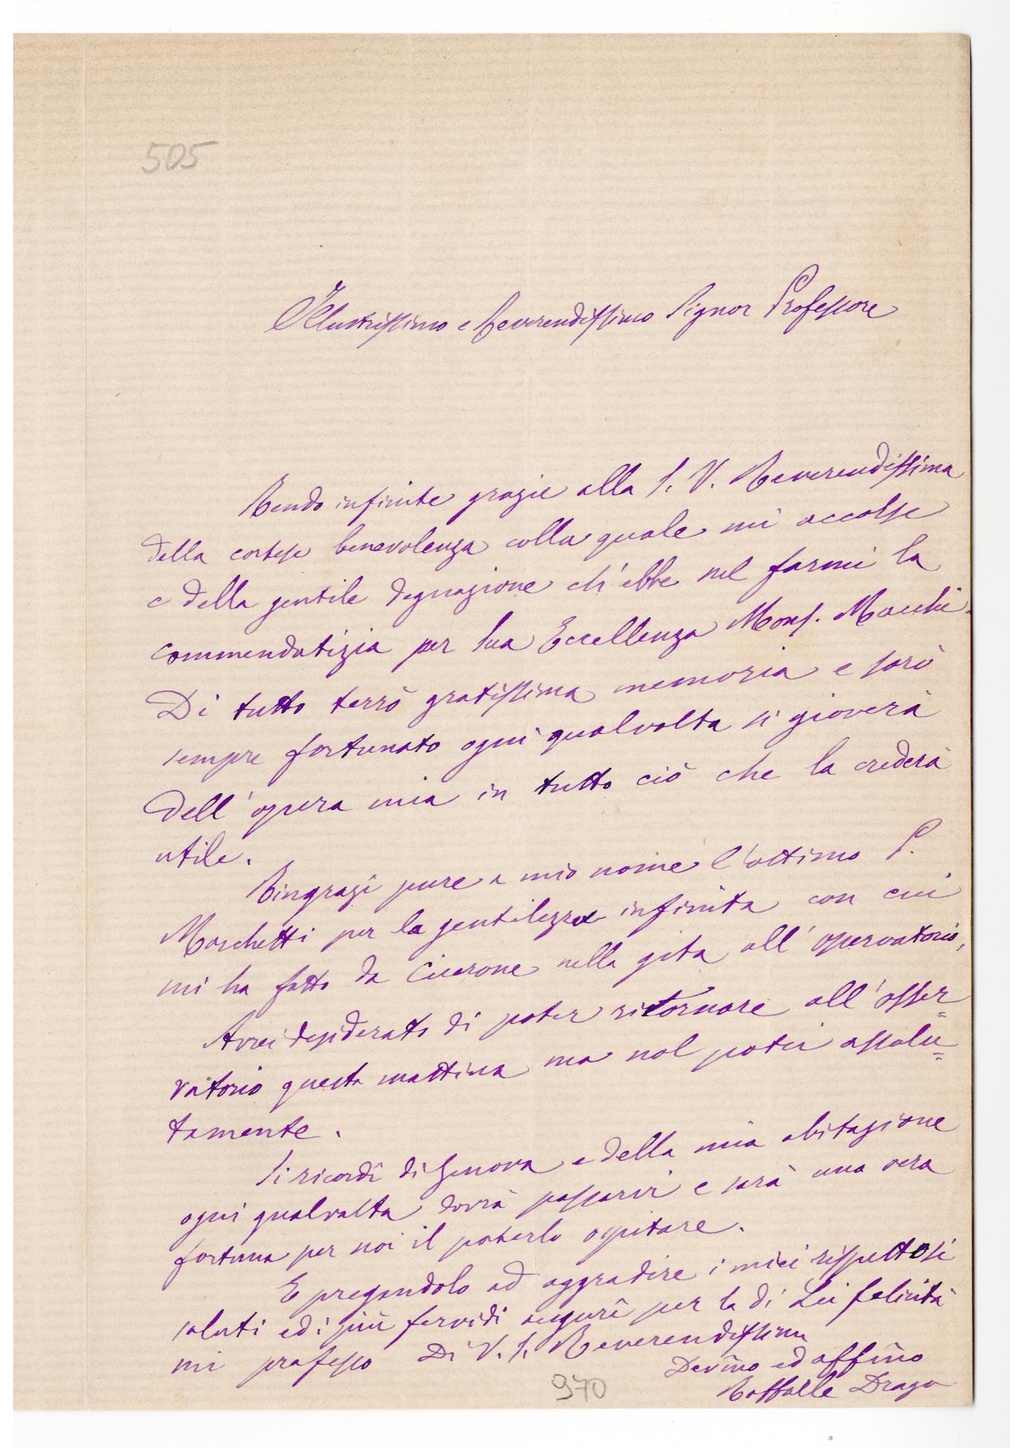 505
Illustrissimo e Reverendissimo Signor Professore
Rendo infinite grazie alla S. V. Reverendissima
della cortese benevolenza colla quale mi accolse
e della gentile degnazione ch'ebbe nel farmi la
commendatizia per Sua Eccellenza Mons. Mocchi.
Di tutto terrò gratissima memoria e sarò
sempre fortunato ogni qualvolta si gioverà
dell'opera mia in tutto ciò che la crederà
utile.
Ringrazi pure a mio nome l'ottimo P.
Marchetti per la gentilezza infinita con cui
mi ha fatto da Cicerone nella gita all'osservatorio,
Avrei desiderato di poter ritornare all'osser=
vatorio questa mattina ma nol potei assolu=
tamente.
Si ricordi di Genova e della mia abitazione
ogni qualvolta dovrà passarvi e sarà una vera
fortuna per noi il poterlo ospitare.
E pregandolo ad aggradire i miei rispettosi
saluti ed i più fervidi augurî per la di Lei felicità
mi professo Di V. S. Reverendissima
Dev̄mo ed aff̄mo
Raffaele Drago
970